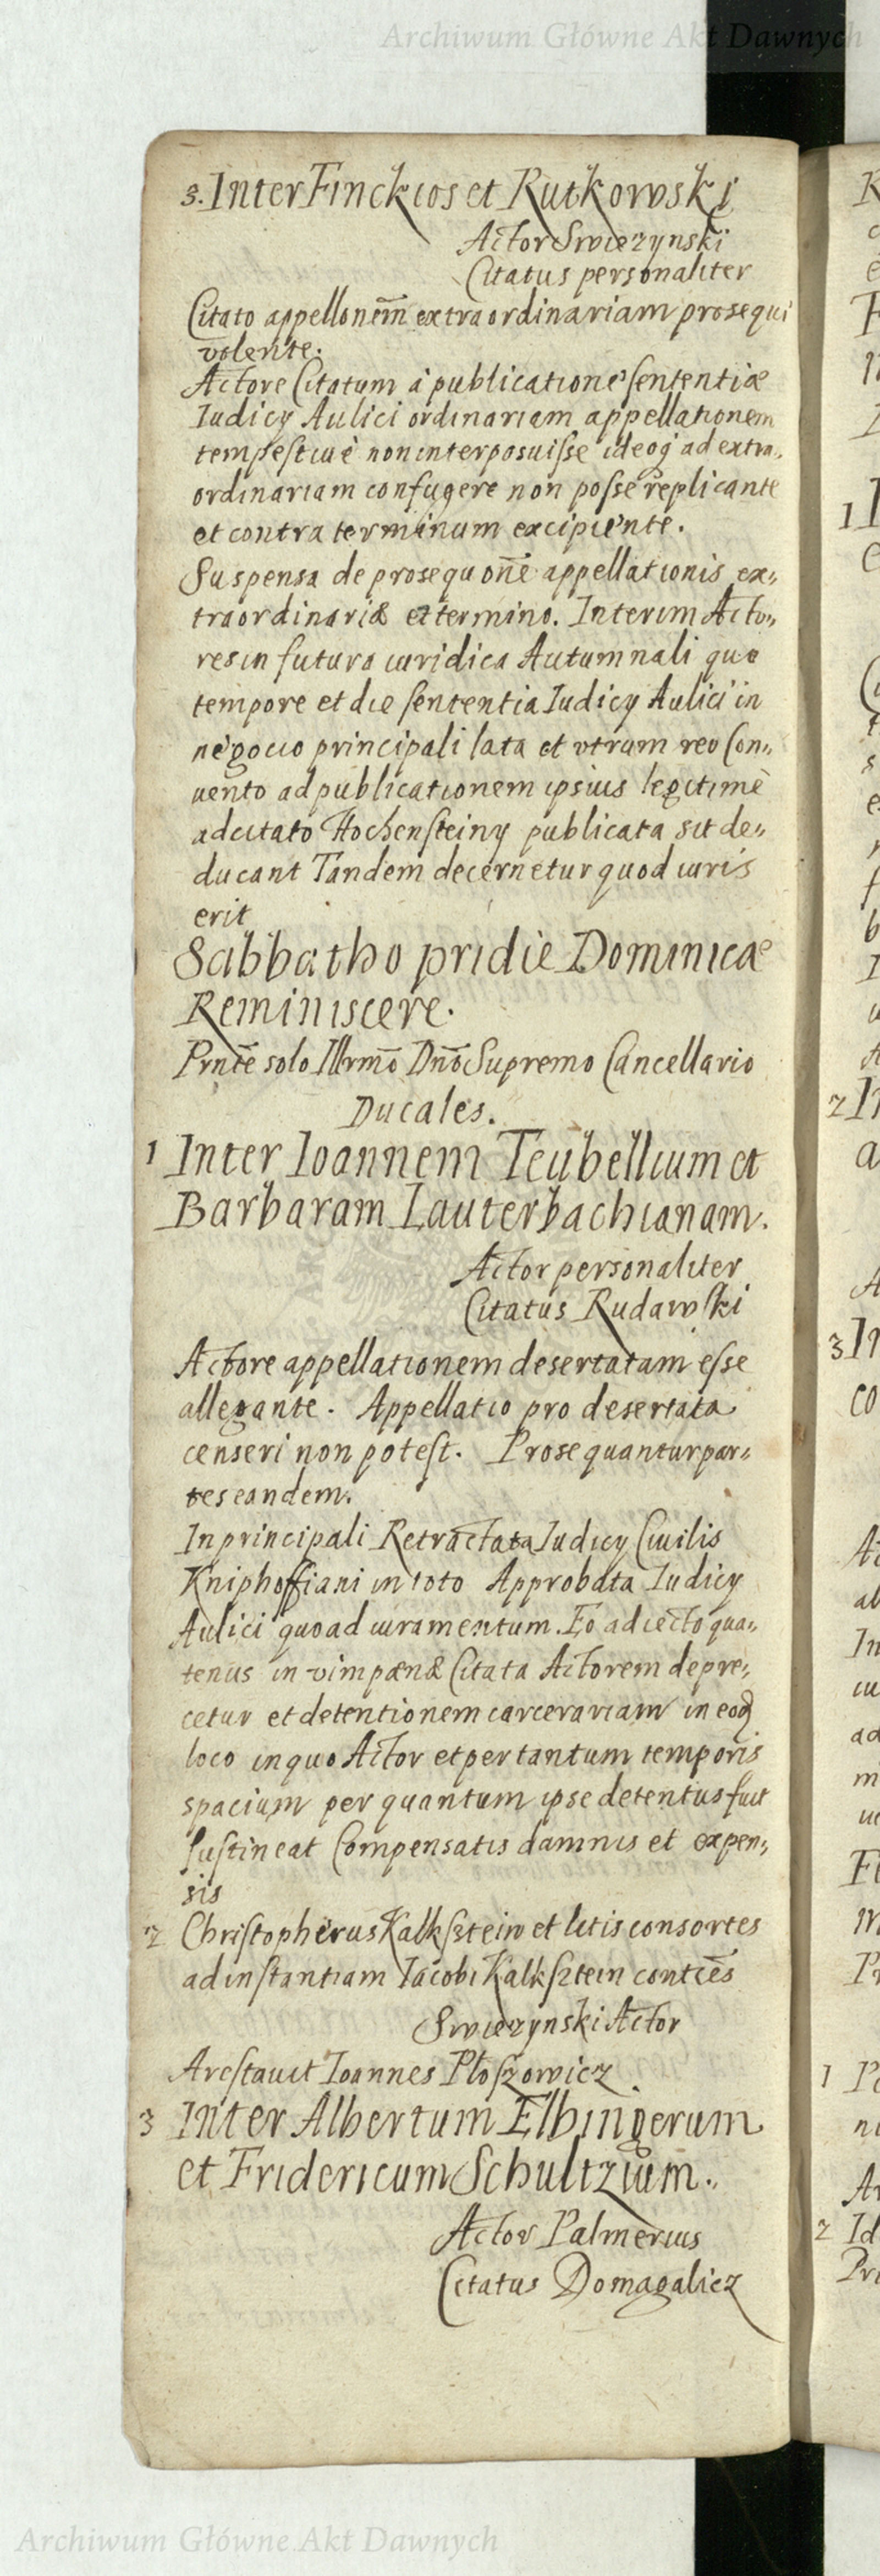 Archiwum Główne Akt Dawnych
3. Inter Finckios et Rutkowski
Actor Swiezynski
Citatus personaliter
Citato appellonem̄ extraordinariam prosequi
volente.
Actore Citatum à publicatione sententiæ
Iudicy Aulici ordinariam appellationem
tempestiuè non interposuisse ideoq́ ad extra,,
ordinariam confugere non posse replicante
et contra terminum excipiente.
Suspensa de prosequōne appellationis ex,,
traordinariæ et termino. Interim Acto,,
res in futura iuridica Autumnali quo
tempore et die sententia Iudicy Aulici in
negocio principali lata et vtrum reo Con,,
uento ad publicationem ipsius legitimè
adcitato Hochensteiny publicata sit de,,
ducant Tandem decernetur quod iuris
erit
Sabbatho pridie Dominicæ
Reminiscere.
Prnt̄e solo Illrmō Dnō Supremo Cancellario
Ducales.
1 Inter Ioannem Teubellium et
Barbaram Lauterbachianam.
Actor personaliter
Citatus Rudawski
Actore appellationem desertatam esse
allegante. Appellatio pro desertata
censeri non potest. Prosequantur par,,
tes eandem.
In principali Retractata Iudicy Ciuilis
Kniphoffiani in toto Approbata Iudicy
Aulici quoad iuramentum. Eo adiecto qua,,
tenus in vim pænæ Citata Actorem depre,,
cetur et detentionem carcerariam in eoq́
loco in quo Actor et per tantum temporis
spacium per quantum ipse detentus fuit
sustineat Compensatis damnis et expen,,
sis
2 Christopherus Kalksztein et litis consortes
ad instantiam Iacobi Kalksztein contcēs
Swiezynski Actor
Arestauit Ioannes Ploszowicz
3 Inter Albertum Elbingerum
et Fridericum Schultzium.
Actor Palmerius
Citatus Domagalicz
Archiwum Główne Akt Dawnych